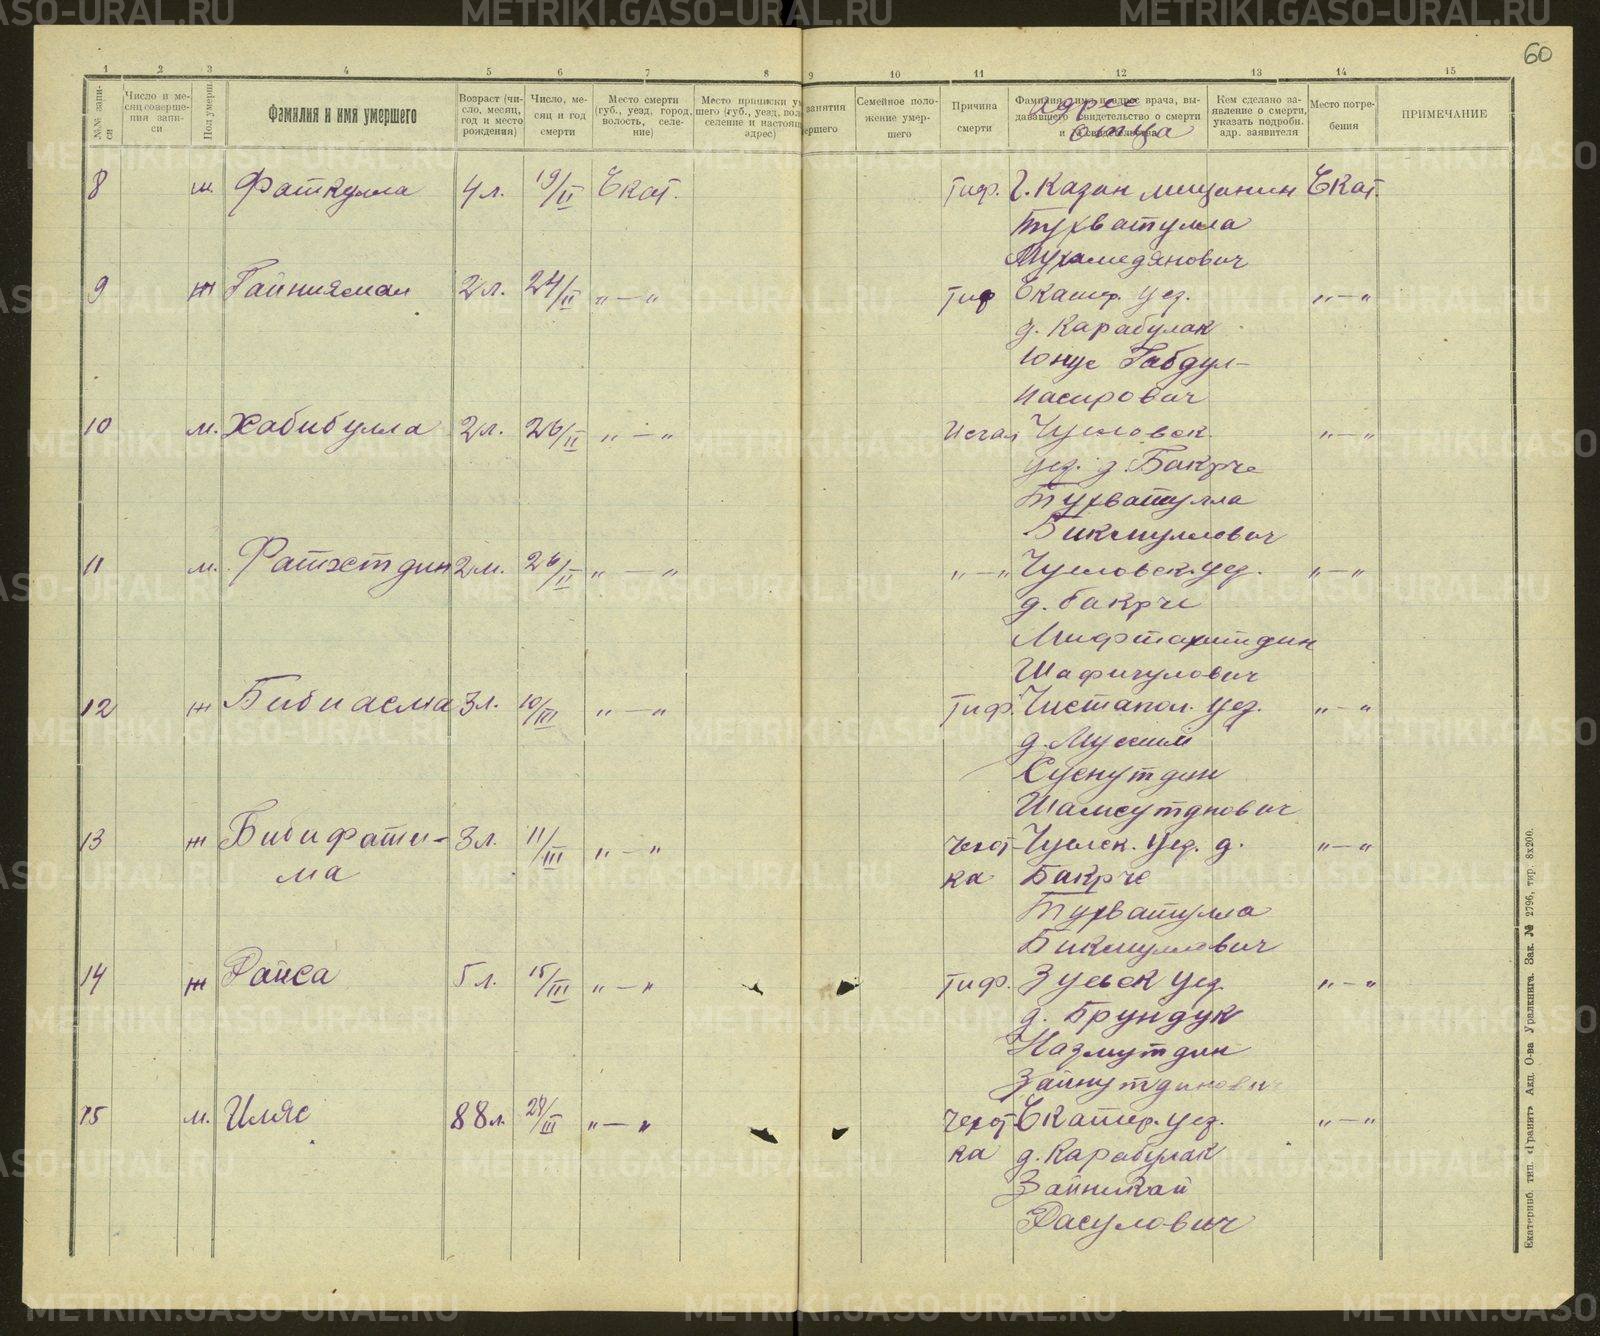 60
1 2 3 4 5 6 7 8 9 10 11 12 13 14 15
№№ записи
Число и месяц совершения записи
Пол умерш.
Фамилия и имя умершего
Возраст (число, месяц, год и место рождения)
Число, месяц и год смерти
Место смерти (губ., уезд, город, волость, селение)
Место приписки
занятия
Семейное положение умершего
Причина смерти
Фамилия, имя и адрес врача, выдавашего свидетельство о смерти
адрес отца
Кем сделано заявление о смерти, указать подробн. адр. заявителя
Место погребения
ПРИМЕЧАНИЕ
8 м Фаткулла 4 л. 19/II Екат. Тиф. Г. Казан мещанин Екат.
Тухватулла
Мухамедянович
9 ж 2 л. 24/II „—„ Тиф Екатер. уез. „—„
д. Карабулак
Юнус Габдул-
насирович
10 м. Хабибулла 2 л. 26/II „—„ „—„
уез. д. Бакрче
Тухватулла
Бикмуллович
11 м. 2 м. 26/II „—„ „—„ уез. „—„
д. Бакрче
Мифтахитдин
12 ж Бибиасма 3 л. 10/III „—„ Тиф. Чистапол. уез. „—„
д.
Хуснутдин
13 ж Бибифати- 3 л. 11/III „—„ Чехот- уез. д. „—„
ма ка Бакрче
Тухватулла
Бикмуллович
14 ж Раиса 5 л. 15/III „—„ Тиф. уез. „—„
д. Брундук
Назмутдин
Зайнутдинович
15 м. Иляс 88 л. 28/III „—„ Чехот- Екатер. уез. „—„
ка д. Карабулак
Расулович
Екатеринб. тип. «Гранит» Акц. О-ва Уралкнига. Зак. № 2796, тир. 8х200.
METRIKI.GASO-URAL.RU